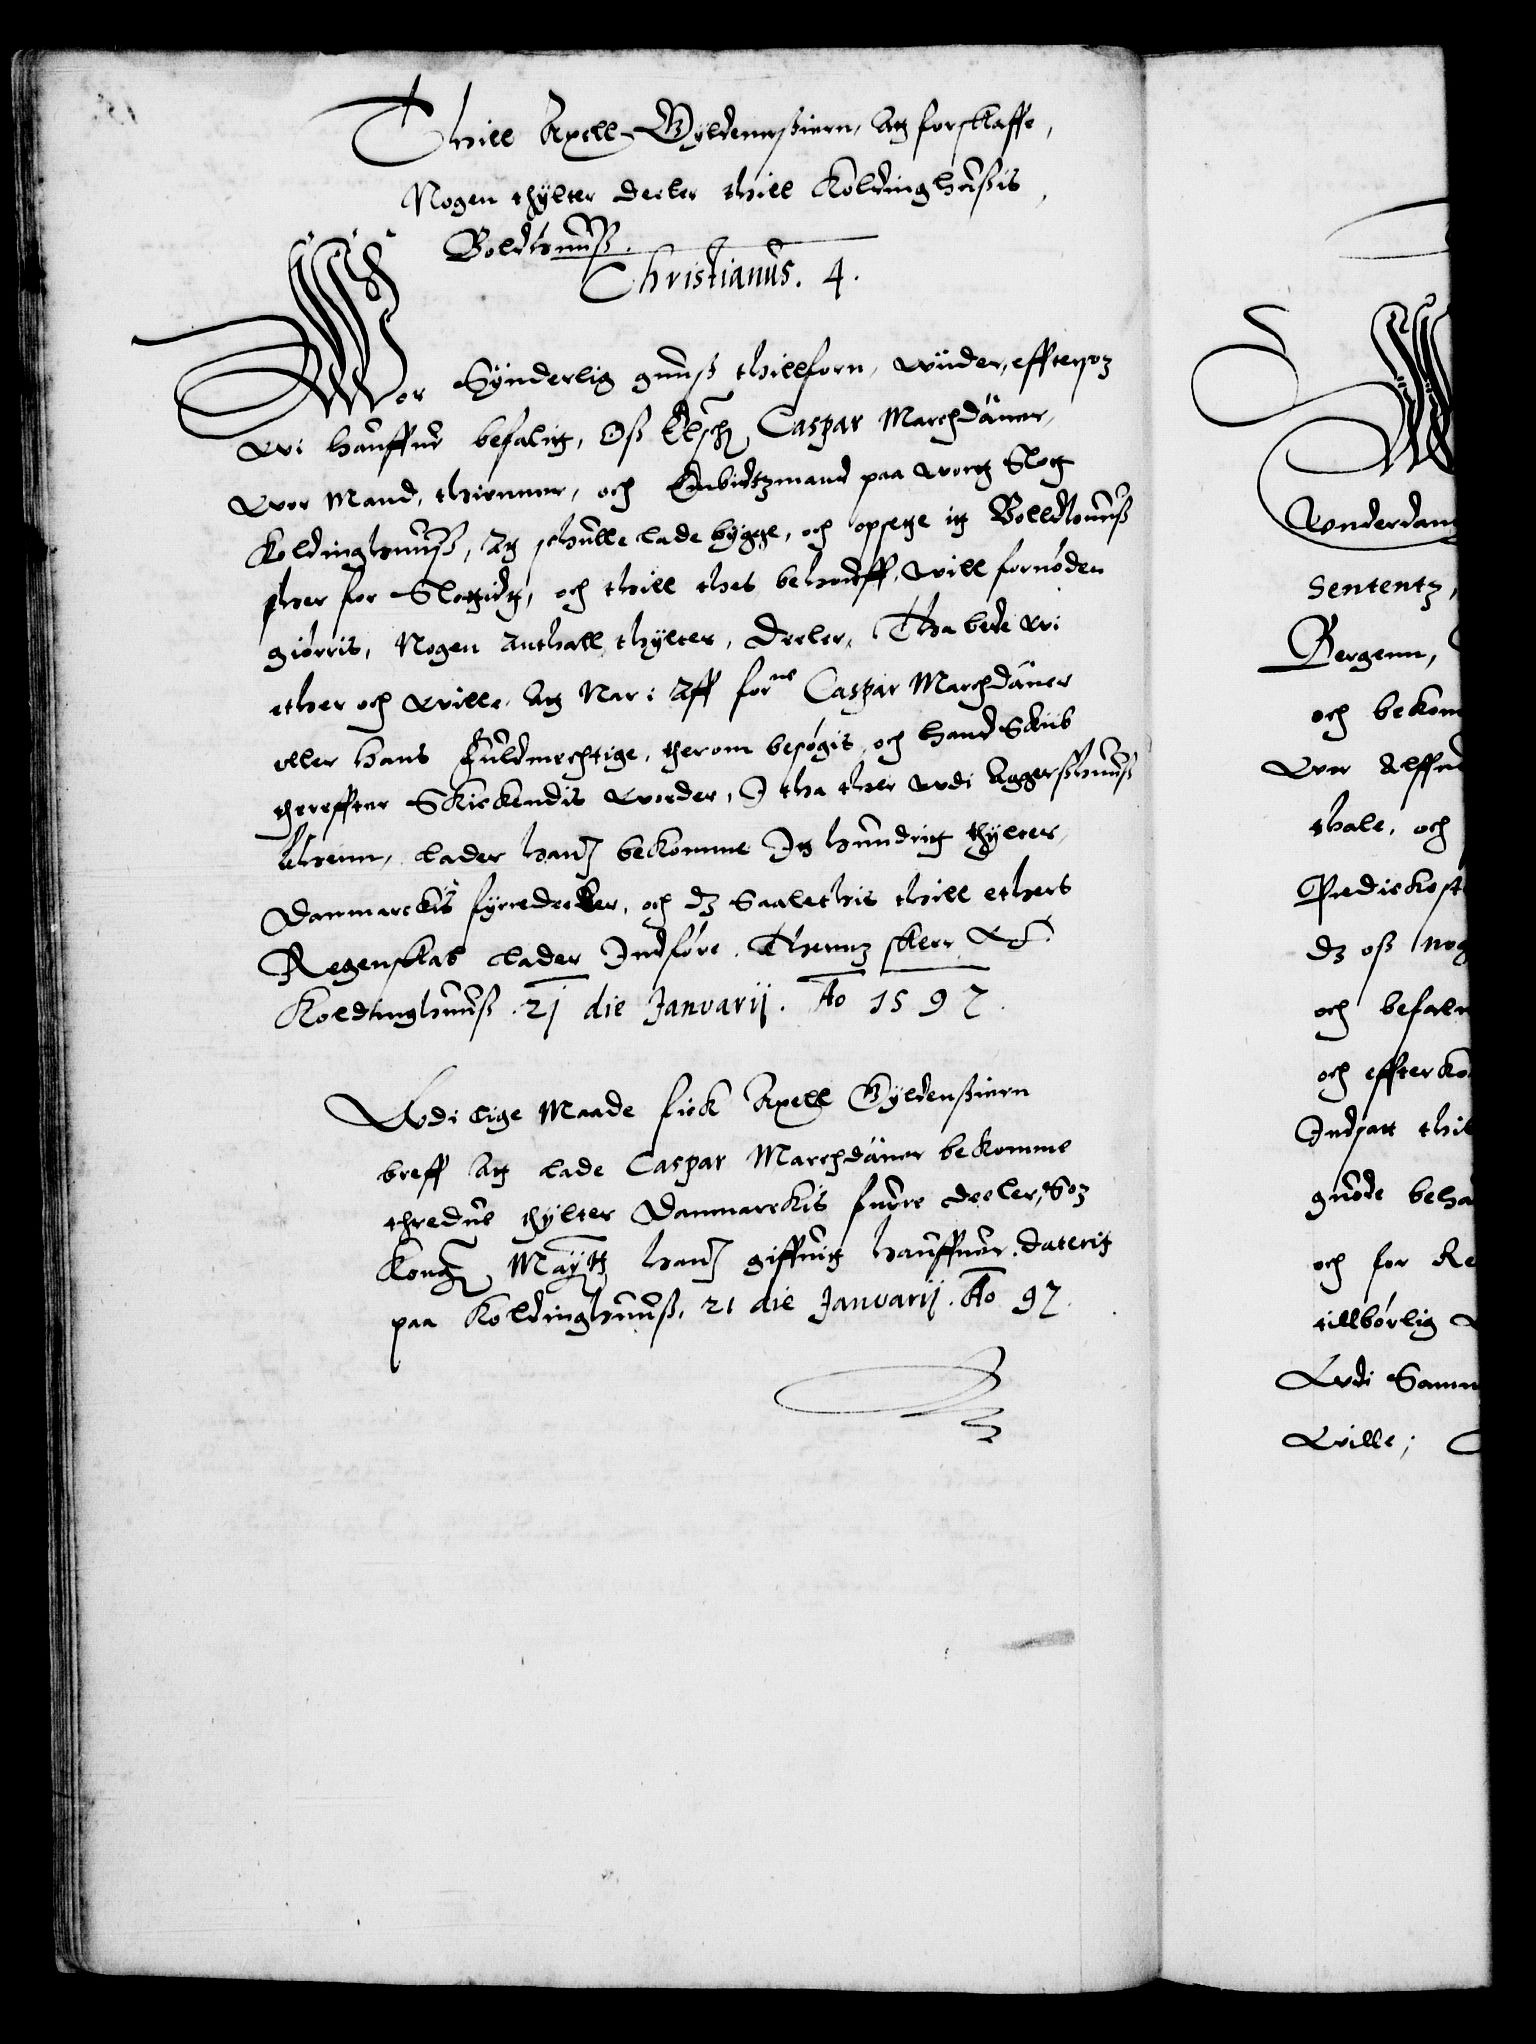 Thill Axell Gyldennstiern, Att forskaffe,
Nogen thylter deeler thill Koldinghussis,
Boldthuuß.
Christianus. 4.
Wor Synderlig gunst thillforn, wiider, efftersom
Wi haffuer befalitt, Oss Elsch Caspar Marchdaner,
Wor Mand, thienner, och Embitzmand paa wortt Slott
Koldinghuuß, Att schulle lade bygge, och opsette itt Bolldthuuß
ther for Slottidtt, och thill thes behouff, will fornöden
giörris, Nogen anthall thylter, Deeler, Tha bede wi
ether och wille, Att Nar i Aff forne Caspar Marchdäner
eller hans fuldmechtige, therom besögis, och hand Skiib
ther effter Skickendis worder, I tha ther wdi Aggerßhuuß
Lehenn, lader hanom bekomme Itt hundrit thylter
Danmarckis fyrredeeler, och dz Saalethis thill ethers
Regenskab lader Indföre. Thermz skeer etc.
Koldinghuuß. 21 die Januarij. Ao 1597.
Wdi lige Maade fick Axell Gyldenstiern
breff Att lade Caspar Marchdäner bekomme
thredue thylter Danmarckis furre deeler, Som
Kong Maytt hanom giffuit haffuer. daterit
paa Koldinghuuß. 21 die Januarij. Ao 97.
Wnderdan
Sententz,
Bergenn,
och bekom
Wor
thale, och
Predickost
dz oss nog
och befal
och effterko
Indsatt thil
gunde beha
och for Re
tillbörlig
Wdi Samm
Wille;